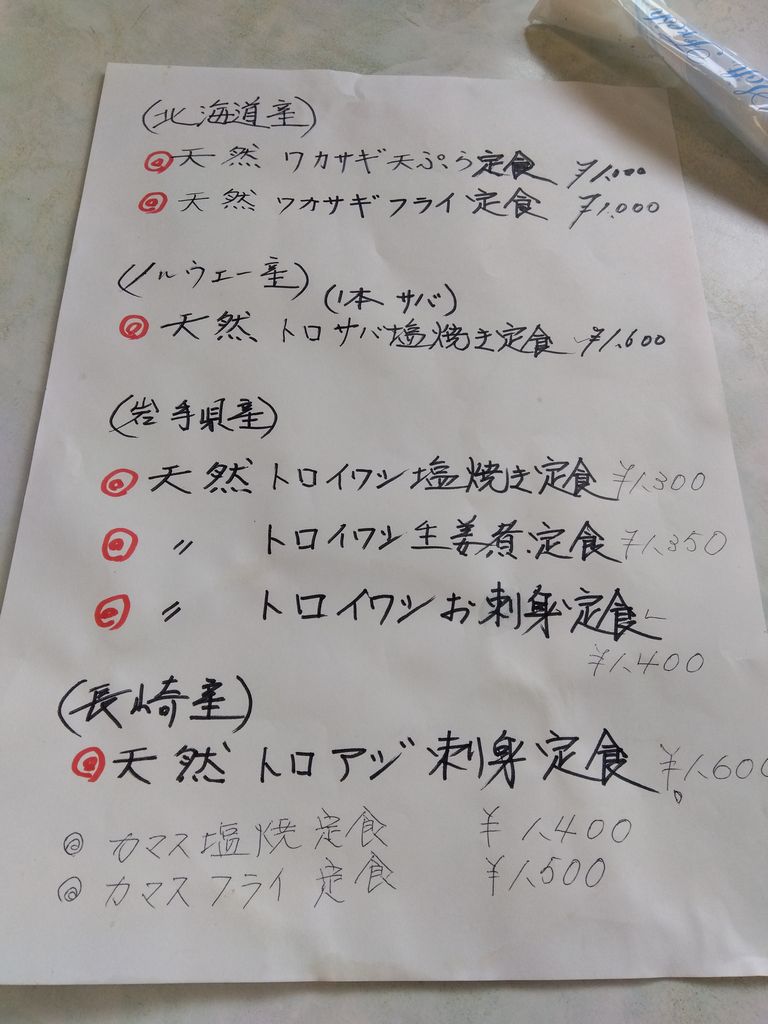 (北海道産)
◎天然 ワカサギ天ぷら定食 ¥1,000
◎天然 ワカサギフライ定食 ¥1,000
(ノルウェー産) (1本 サバ)
◎天然 トロサバ塩焼き定食 ¥1,600
(岩手県産)
◎天然 トロイワシ塩焼き定食 ¥1,300
◎〃 トロイワシ生姜煮定食 ¥1,350
◎〃 トロイワシお刺身定食
¥1,400
(長崎産)
◎天然 トロアジ刺身定食 ¥1,600
◎カマス塩焼定食 ¥1,400
◎カマスフライ定食 ¥1,500